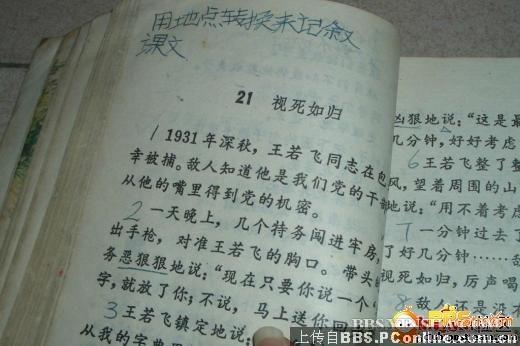 用地点转换来记叙
课文
21 视死如归
1 1931年深秋，王若飞同志在包
幸被捕。敌人知道他是我们党的干部
从他的嘴里得到党的机密。
2 一天晚上，几个特务闯进牢房，
出手枪，对准王若飞的胸口。带头的
务恶狠狠地说：“现在只要你说一个“
字，就放了你；不说，马上送你回
3 王若飞镇定地说：
从我的字典
凶狠地说：“这是最
几分钟，好好考虑
6 王若飞整了整
风，望着周围的山
地说：“用不着考虑
7 一分钟过去了
了好几分钟……敌
视死如归，厉声喝
8 敌人还是没
上传自BBS.PConline.com.cn